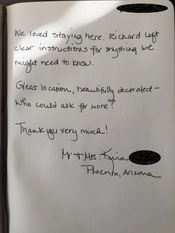 We loved staying here. Richard left
clear instructions for anything we
might need to know.
Great location, beautifully decorated –
who could ask for more?
Thank you very much!
Mr + Mrs.
Phoenix, Arizona